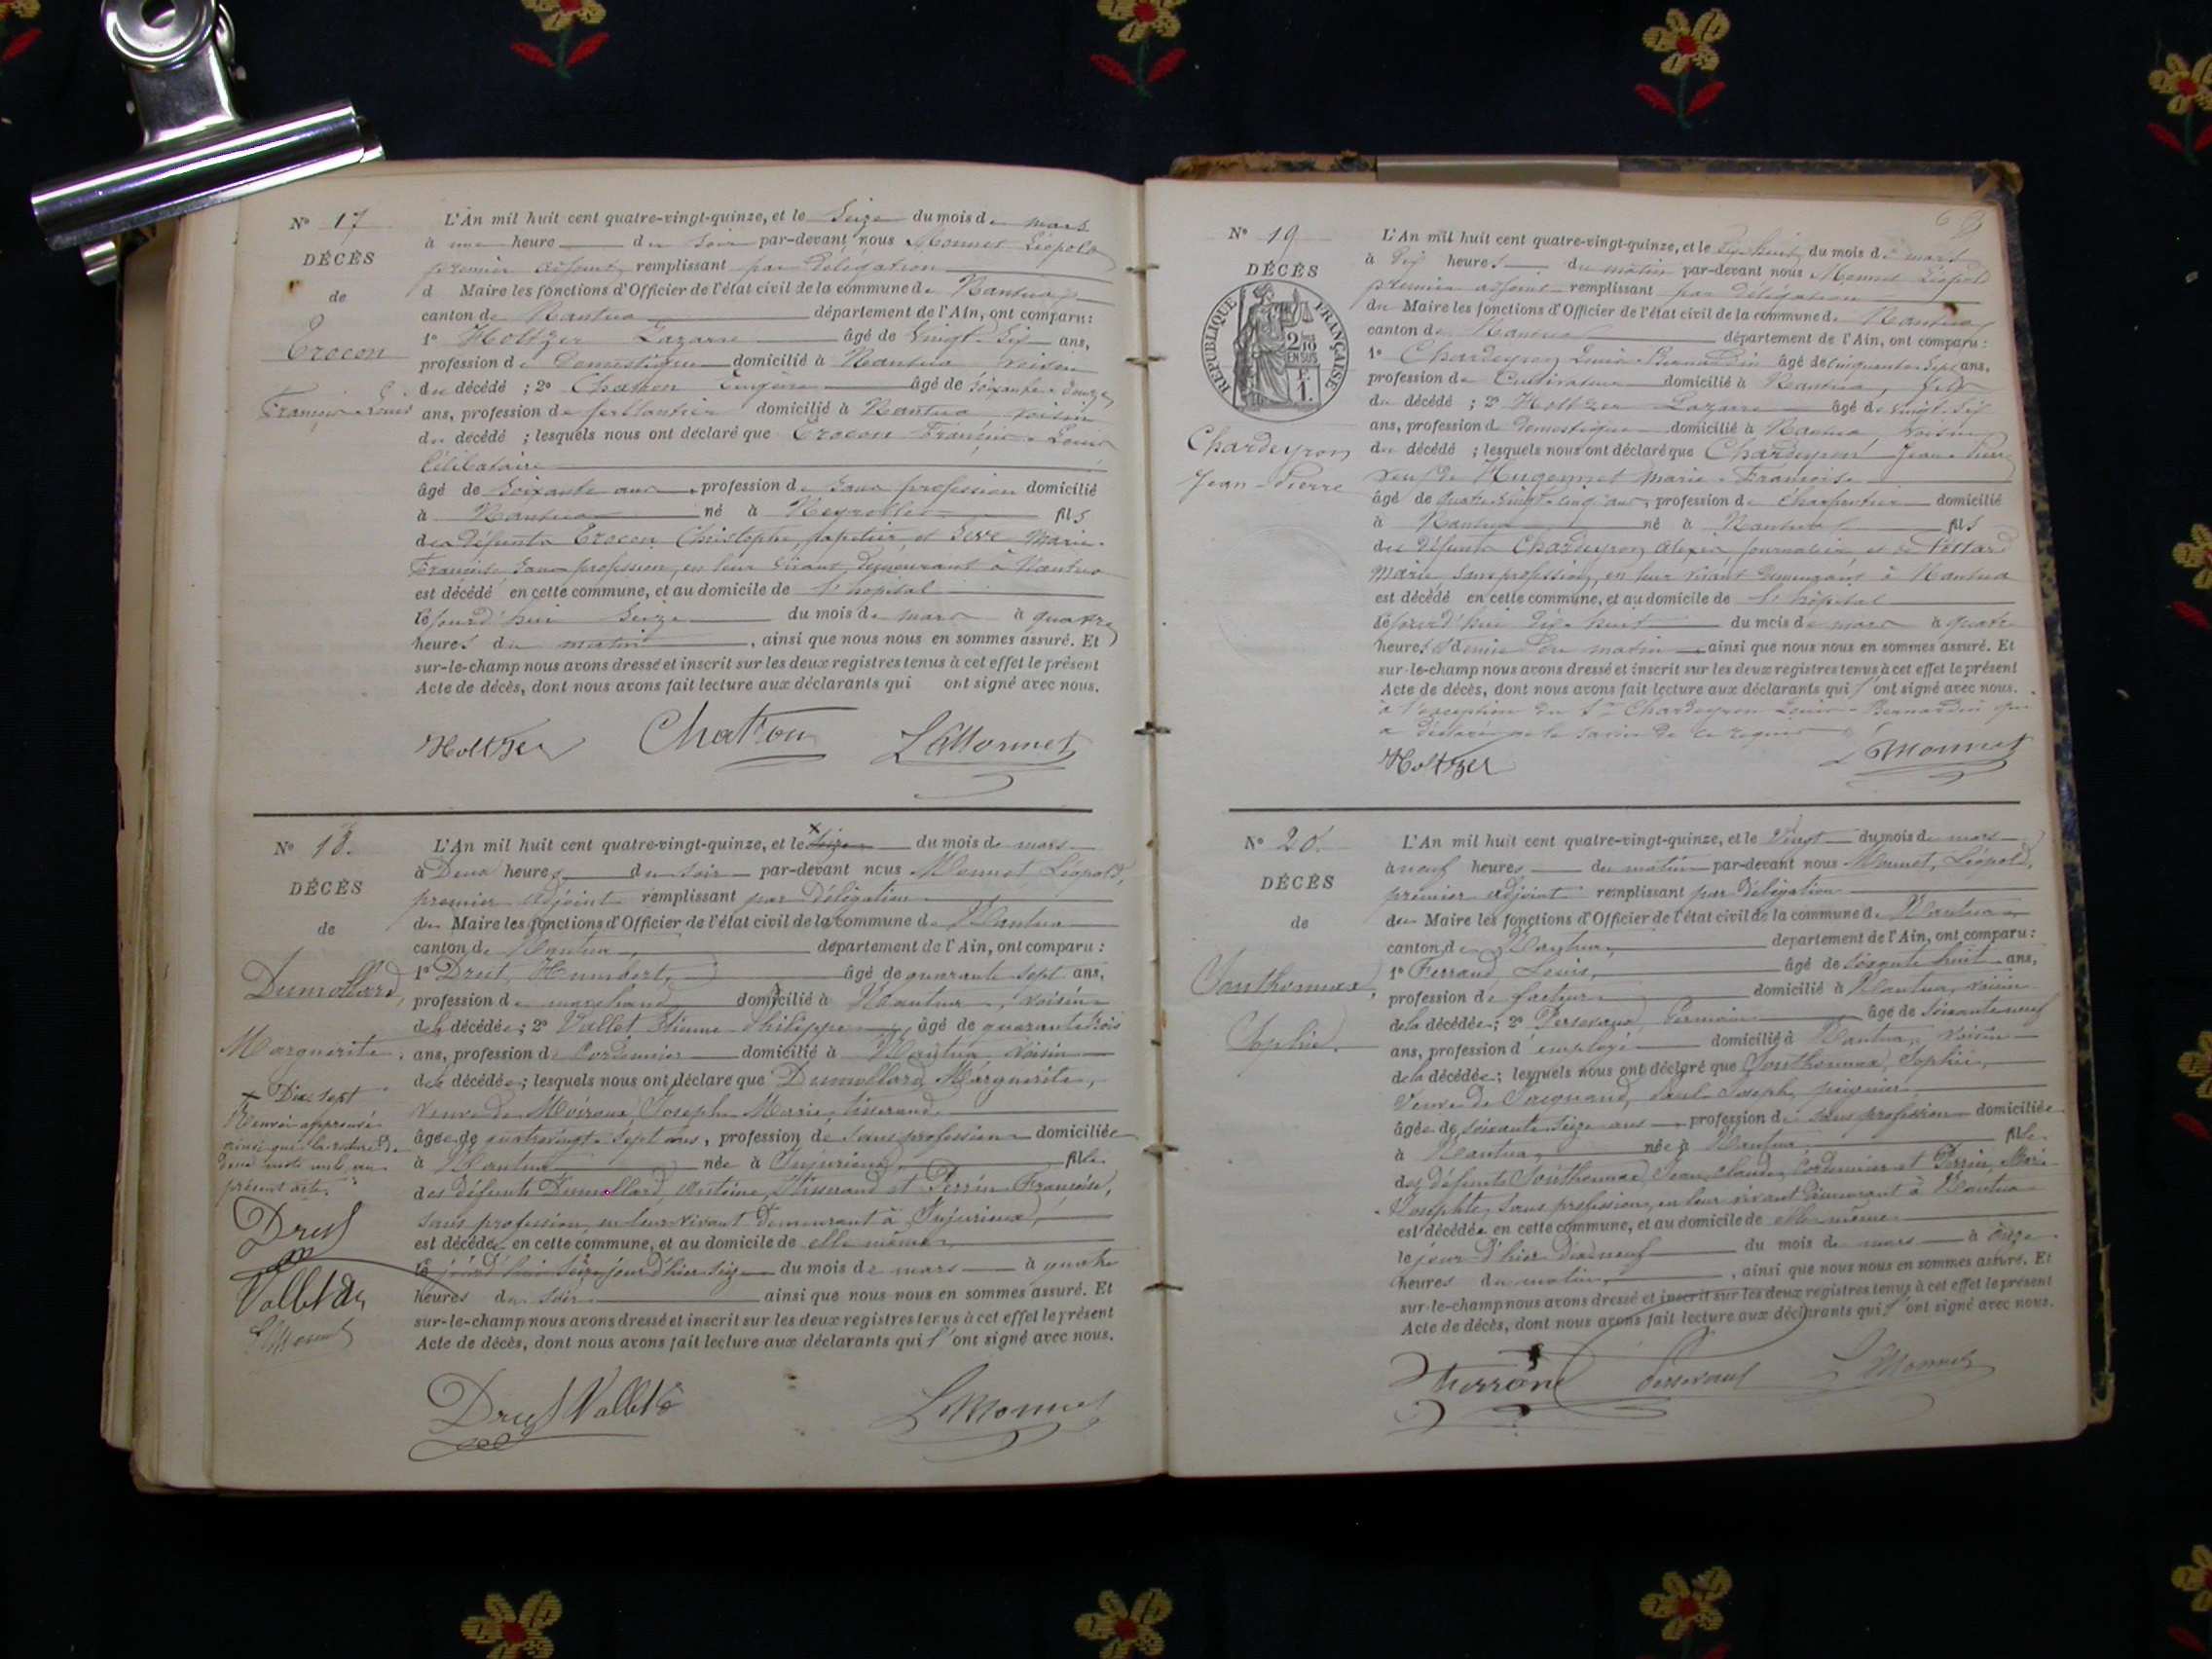 N° 17
DÉCÈS
de
Crocon
François-Louis
L'An mil huit cent quatre-vingt-quinze, et le Seize du mois de mars
à une heure du soir par-devant nous Monnet Léopold
premier adjoint remplissant par délégation
d Maire les fonctions d'Officier de l'état civil de la commune de Nantua
canton de Nantua département de l'Ain, ont comparu:
1° Holtzer Lazarre âgé de Vingt-Six ans,
profession de Domestique domicilié à Nantua voisin
du décédé ; 2° Chatron Eugène âgé de soixante-douze
ans, profession de ferblantier domicilié à Nantua voisin
du décédé ; lesquels nous ont déclaré que Crocon François-Louis
Célibataire
âgé de soixante ans, profession de sans profession domicilié
à Nantua né à Neyrolles fils
des défunts Crocon Christophe, papetier et Seve Marie-
Françoise sans profession, en leur vivant demeurant à Nantua
est décédé en cette commune, et au domicile de l'hôpital
le jourd'hui Seize du mois de mars à quatre
heures du matin, ainsi que nous nous en sommes assuré. Et
sur-le-champ nous avons dressé et inscrit sur les deux registres tenus à cet effet le présent
Acte de décès, dont nous avons fait lecture aux déclarants qui ont signé avec nous.
Holtzer Chatron L Monnet
N° 18.
DÉCÈS
de
Dumollard,
Marguerite.
x Dix-sept
Renvoi approuvé
ainsi que la rature de
deux mots nuls au
présent acte.
L Monnet
L'An mil huit cent quatre-vingt-quinze, et le x Seize du mois de mars
à Deux heures du soir par-devant nous Monnet, Léopold,
premier adjoint remplissant par délégation
du Maire les fonctions d'Officier de l'état civil de la commune de Nantua
canton de Nantua, département de l'Ain, ont comparu :
1° Humbert, âgé de quarante-sept ans,
profession de marchand domicilié à Nantua, voisin
de la décédée; 2° Vallet Etienne-Philippe, âgé de quarante-trois
ans, profession de Cordonnier domicilié à Nantua voisin
de la décédée; lesquels nous ont déclaré que Dumollard, Marguerite,
veuve de Joseph-Marie, tisserand
âgée de quatre-vingt-sept ans, profession de sans profession domiciliée
à Nantua née à Jujurieux, fille
des défunts Dumollard, Antoine, tisserand et Perrin Françoise,
sans profession, en leur vivant demeurant à Jujurieux,
est décédée en cette commune, et au domicile de elle-même,
le jourd'hui Seize jour d'hier seize du mois de mars à quatre
heures du soir ainsi que nous nous en sommes assuré. Et
sur-le-champ nous avons dressé et inscrit sur les deux registres tenus à cet effet le présent
Acte de décès, dont nous avons fait lecture aux déclarants qui l'ont signé avec nous.
L Monnet
N° 19
DÉCÈS
RÉPUBLIQUE FRANÇAISE
2/10 EN SUS
F. 1.
Chardeyron
Jean-Pierre
L'An mil huit cent quatre-vingt-quinze, et le Dix-huit du mois de mars
à Dix heures du matin par-devant nous Monnet Léopold
premier adjoint remplissant par délégation
du Maire les fonctions d'Officier de l'état civil de la commune de Nantua
canton de Nantua département de l'Ain, ont comparu :
1° Chardeyron Louis-Bernardin âgé de cinquante-sept ans,
profession de Cultivateur domicilié à Nantua, fils
du décédé ; 2° Holtzer Lazarre âgé de vingt-six
ans, profession de domestique domicilié à Nantua voisin
du décédé ; lesquels nous ont déclaré que Chardeyron Jean-Pierre
veuf de Hugonnet Marie-Françoise
âgé de quatre-vingt-cinq ans, profession de Charpentier domicilié
à Nantua né à Nantua fils
des défunts Chardeyron Alexis journalier et de
Marie, sans profession, en leur vivant demeurant à Nantua
est décédé en cette commune, et au domicile de l'hôpital
le jourd'hui Dix-huit du mois de mars à quatre
heures et demie du matin ainsi que nous nous en sommes assuré. Et
sur-le-champ nous avons dressé et inscrit sur les deux registres tenus à cet effet le présent
Acte de décès, dont nous avons fait lecture aux déclarants qui l'ont signé avec nous.
à l'exception du Sr Chardeyron Louis-Bernardin qui
a déclaré ne le savoir de ce requis
Holtzer L Monnet
N° 20.
DÉCÈS
de
Jonthonnax,
Sophie.
L'An mil huit cent quatre-vingt-quinze, et le Vingt du mois de mars
à neuf heures du matin par-devant nous Monnet, Léopold,
premier adjoint remplissant par délégation
du Maire les fonctions d'Officier de l'état civil de la commune de Nantua
canton de Nantua, département de l'Ain, ont comparu:
1° Ferrand, Louis, âgé de soixante-huit ans,
profession de facteur domicilié à Nantua, voisin
de la décédée; 2° Germain âgé de soixante-neuf
ans, profession d'employé domicilié à Nantua, voisin
de la décédée; lesquels nous ont déclaré que Jonthonnax, Sophie,
Veuve de Paul-Joseph,
âgée de soixante-seize ans profession de sans profession domiciliée
à Nantua, née à Nantua, fille
des défunts Jonthonnax, Jean-Claude, Cordonnier et Perrin, Marie-
Josephte, sans profession, en leur vivant demeurant à Nantua
est décédée en cette commune, et au domicile de elle-même
le jour d'hier Dix-neuf du mois de mars à onze
heures du matin, ainsi que nous nous en sommes assuré. Et
sur-le-champ nous avons dressé et inscrit sur les deux registres tenus à cet effet le présent
Acte de décès, dont nous avons fait lecture aux déclarants qui l'ont signé avec nous.
L Monnet